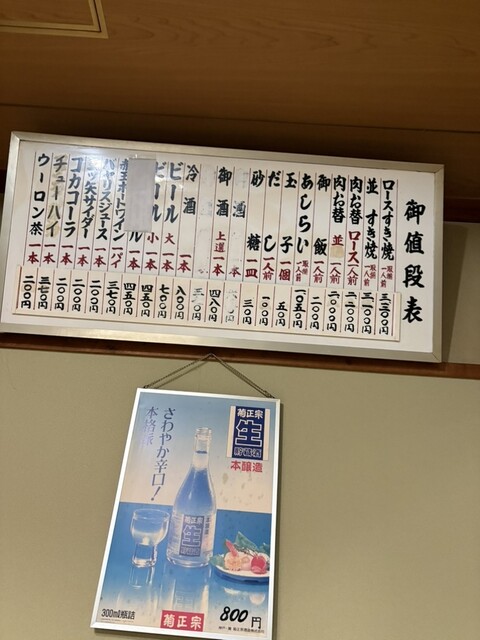 御値段表
ロースすき焼 一人前 三三〇〇円
並すき焼 一人前 三一〇〇円
肉お替 ロース 一人前 二二〇〇円
肉お替 並 一人前 二〇〇〇円
御飯 一人前 二〇〇円
あしらい 一人前 一〇五〇円
玉子 一個 五〇円
だし 一人前 一〇〇円
砂糖 一皿 三〇円
酒
御酒 上道 一本 四八〇円
冷酒 一本 八〇〇円
ビール 大 一本 七〇〇円
ビール 小 一本 四五〇円
ル 一本 四五〇円
ワイン 一パイ 三七〇円
バヤリスジュース 一本 二〇〇円
三ツ矢サイダー 一本 二〇〇円
コカコーラ 一本 二〇〇円
チューハイ 一本 三七〇円
ウーロン茶 一本 二〇〇円
菊正宗
生
貯蔵酒
本醸造
さわやか辛口!
本格派
菊正宗
生
300ml瓶詰
菊正宗
800円